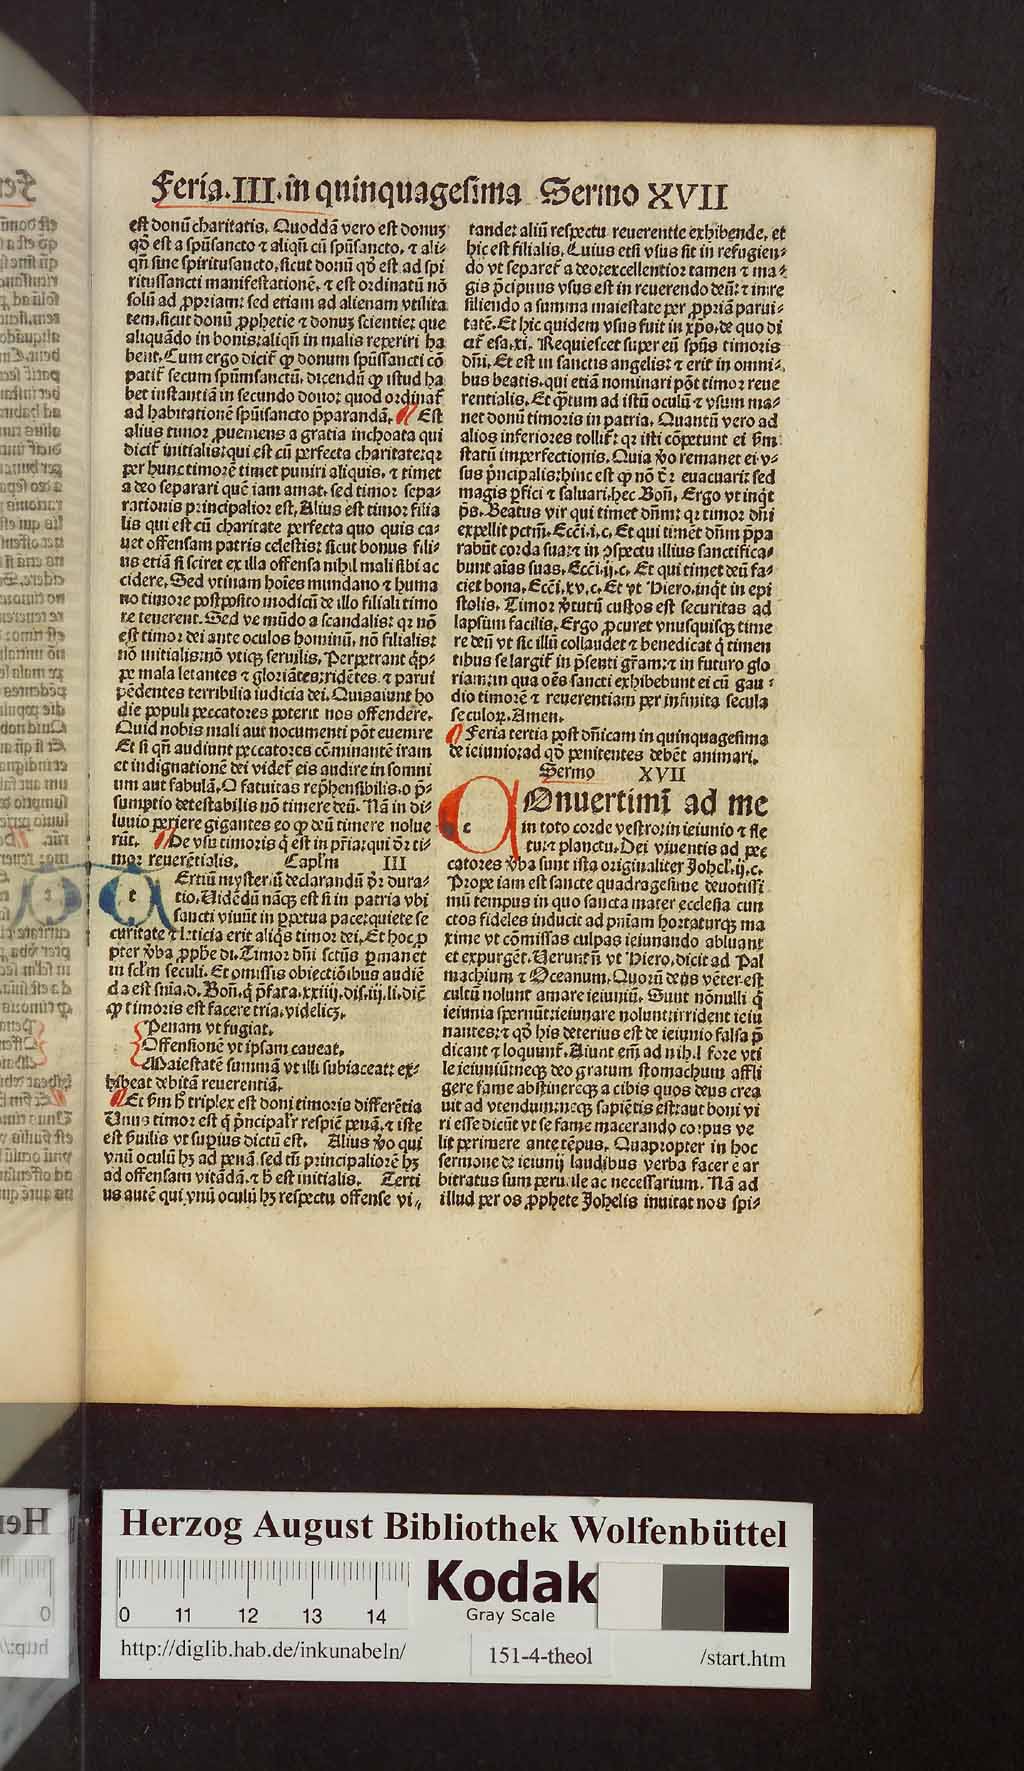 Feria.III.in quinquagesima Sermo XVII
est donū charitatis. Quoddā vero est donuꝫ
qd̛ est a spūsancto ⁊ aliqn̄ cū spūsancto, ⁊ ali-
qn̄ sine spiritusancto, sicut donū qd̛ est ad spi
ritussancti manifestationē, ⁊ est ordinatū nō
solū ad ꝓpriam: sed etiam ad alienam vtilita
tem, sicut donū ꝓphetie ⁊ donuꝫ scientie: que
aliquādo in bonis: aliqn̄ in malis reperiri ha
bent. Cum ergo dicit̄ ꝙ donum spūssancti cō
patit̄ secum spūmsanctū, dicendū ꝙ istud ha
bet instantiā in secundo dono: quod ordinat̄
ad habitationē spūisancto p̄parandā. Est
alius timor ꝓueniens a gratia inchoata qui
dicit̄ initialis: qui est cū perfecta charitate: qꝛ
per hunc timorē timet puniri aliquis, ⁊ timet
a deo separari quē iam amat, sed timor sepa-
rationis principalior est. Alius est timor filia
lis qui est cū charitate perfecta quo quis ca-
uet offensam patris celestis: sicut bonus fili-
us etiā si sciret ex illa offensa nihil mali sibi ac
cidere. Sed vtinam hoīes mundano ⁊ huma
no timore postposito modicū de illo filiali timo
re teuerent. Sed ve mūdo a scandalis: qꝛ nō
est timor dei ante oculos hominū, nō filialis:
nō initialis: nō vtiqꝫ seruilis. Perpetrant q̄p-
pe mala letantes ⁊ gloriātes: ridētes, ⁊ parui
pēdentes terribilia iudicia dei. Quis aiunt ho
die populi peccatores poterit nos offendere.
Quid nobis mali aut nocumenti pōt euenire
Et si qn̄ audiunt peccatores cōminantē iram
et indignationē dei videt̄ eis audire in somni
um aut fabulā. O fatuitas rep̄hensibilis, o p̄-
sumptio detestabilis nō timere deū. Nā in di-
luuio periere gigantes eo ꝙ deū timere nolue
rūt. De vsu timoris q̄ est in pr̄ia: qui dr̄ ti-
mor reuerētialis. Capl̄m III
Ertiū myster̛ū declarandū dr̄ dura-
tio. Vidēdū nāqꝫ est si in patria vbi
sancti viuūt in ꝑpetua pace: quiete se
curitate ⁊ leticia erit aliq̄s timor dei. Et hoc ꝓ
pter v̄ba ꝓphe di. Timor dn̄i sctūs ꝑmanet
in scl̄m seculi. Et omissis obiectiōibus audiē
da est sn̄ia.d. Bon̄. q̄ p̄fata.xxiiij. dis.iij.li. dic̄
ꝙ timoris est facere tria, videlicꝫ.
Penam vt fugiat.
Offensionē vt ipsam caueat.
Maiestatē summā vt illi subiaceat: ex-
hibeat debitā reuerentiā.
Et ẜm ħ triplex est doni timoris differētia
Vnus timor est q̄ p̄ncipalr̄ respic̄ penā, ⁊ iste
est ẜuilis vt supius dictū est. Alius v̄o qui
vnū oculū hꝫ ad penā, sed tn̄ principaliorē hꝫ
ad offensam vitādā, ⁊ ħ est initialis. Terti
us autē qui vnū oculū hꝫ respectu offense vi-
tande: aliū respectu reuerentie exhibende, et
hic est filialis. Cuius etsi vsus sit in refugien-
do vt separet̄ a deo: excellentior tamen ⁊ ma-
gis p̄cipuus vsus est in reuerendo deū: ⁊ in re
siliendo a summa maiestate per ꝓpriā parui-
tatē. Et hic quidem vsus fuit in xp̄o, de quo di
cit̄ esa.xi. Requiescet super eū spūs timoris
dn̄i. Et est in sanctis angelis: ⁊ erit in omni-
bus beatis, qui etiā nominari pōt timor reue
rentialis. Et q̄tum ad istū oculū ⁊ vsum ma-
net donū timoris in patria. Quantū vero ad
alios inferiores tollit̄: qꝛ isti cōpetunt ei ẜm
statū imperfectionis. Quia v̄o remanet ei v-
sus p̄ncipalis: hinc est ꝙ nō dꝫ euacuari: sed
magis ꝑfici ⁊ saluari, hec Bon̄. Ergo vt inq̄t
p̄s. Beatus vir qui timet dn̄m: qꝛ timor dn̄i
expellit pctm̄. Ecc̄i.i.c. Et qui timet dn̄m p̄pa
rabūt corda sua: ⁊ in ↄspectu illius sanctifica-
bunt aīas suas. Ecc̄i.ij.c. Et qui timet deū fa-
ciet bona. Ecc̄i.xv.c. Et vt Hiero. inq̄t in epi
stolis. Timor v̄tutū custos est securitas ad
lapsum facilis. Ergo ꝓcuret vnusquisqꝫ time
re deū vt sic illū collaudet ⁊ benedicat q̄ timen
tibus se largit̄ in p̄senti gr̄am: ⁊ in futuro glo
riam: in qua oēs sancti exhibebunt ei cū gau-
dio timorē ⁊ reuerentiam per infinita secula
seculoꝝ. Amen.
Feria tertia post dn̄icam in quinquagesima
de ieiunio: ad qd̛ penitentes debēt animari.
Sermo XVII
Onuertimī ad me
in toto corde vestro: in ieiunio ⁊ fle
tu: ⁊ planctu. Dei viuentis ad pec
catores v̄ba sunt ista originaliter Johel̛.ij.c.
Prope iam est sancte quadragesime deuotissi
mū tempus in quo sancta mater ecclesia cun
ctos fideles inducit ad pn̄iam hortaturqꝫ ma
xime vt cōmissas culpas ieiunando abluant
et expurgēt. Verunt̄n vt Hiero. dicit ad Pal
machium ⁊ Oceanum. Quorū deus vēter est
cultū nolunt amare ieiuniū. Sunt nōnulli q̄
ieiunia spernūt: ieiunare nolunt: irrident ieiu
nantes: ⁊ qd̛ his deterius est de ieiunio falsa p̄
dicant ⁊ loquunt̄. Aiunt em̄ ad nihil fore vti
le ieiuniū: neqꝫ deo gratum stomachum affli
gere fame abstinereqꝫ a cibis quos deus crea
uit ad vtendum: neqꝫ sapiētis est: aut boni vi
ri esse dicūt vt se fame macerando corpus ve
lit perimere ante tēpus. Quapropter in hoc
sermone de ieiunij laudibus verba facere ar
bitratus sum perutile ac necessarium. Nā ad
illud per os ꝓphete Johelis inuitat nos spi-
Herzog August Bibliothek Wolfenbüttel
Kodak
Gray Scale
0 11 12 13 14
http://diglib.hab.de/inkunabeln/
151-4-theol
/start.htm